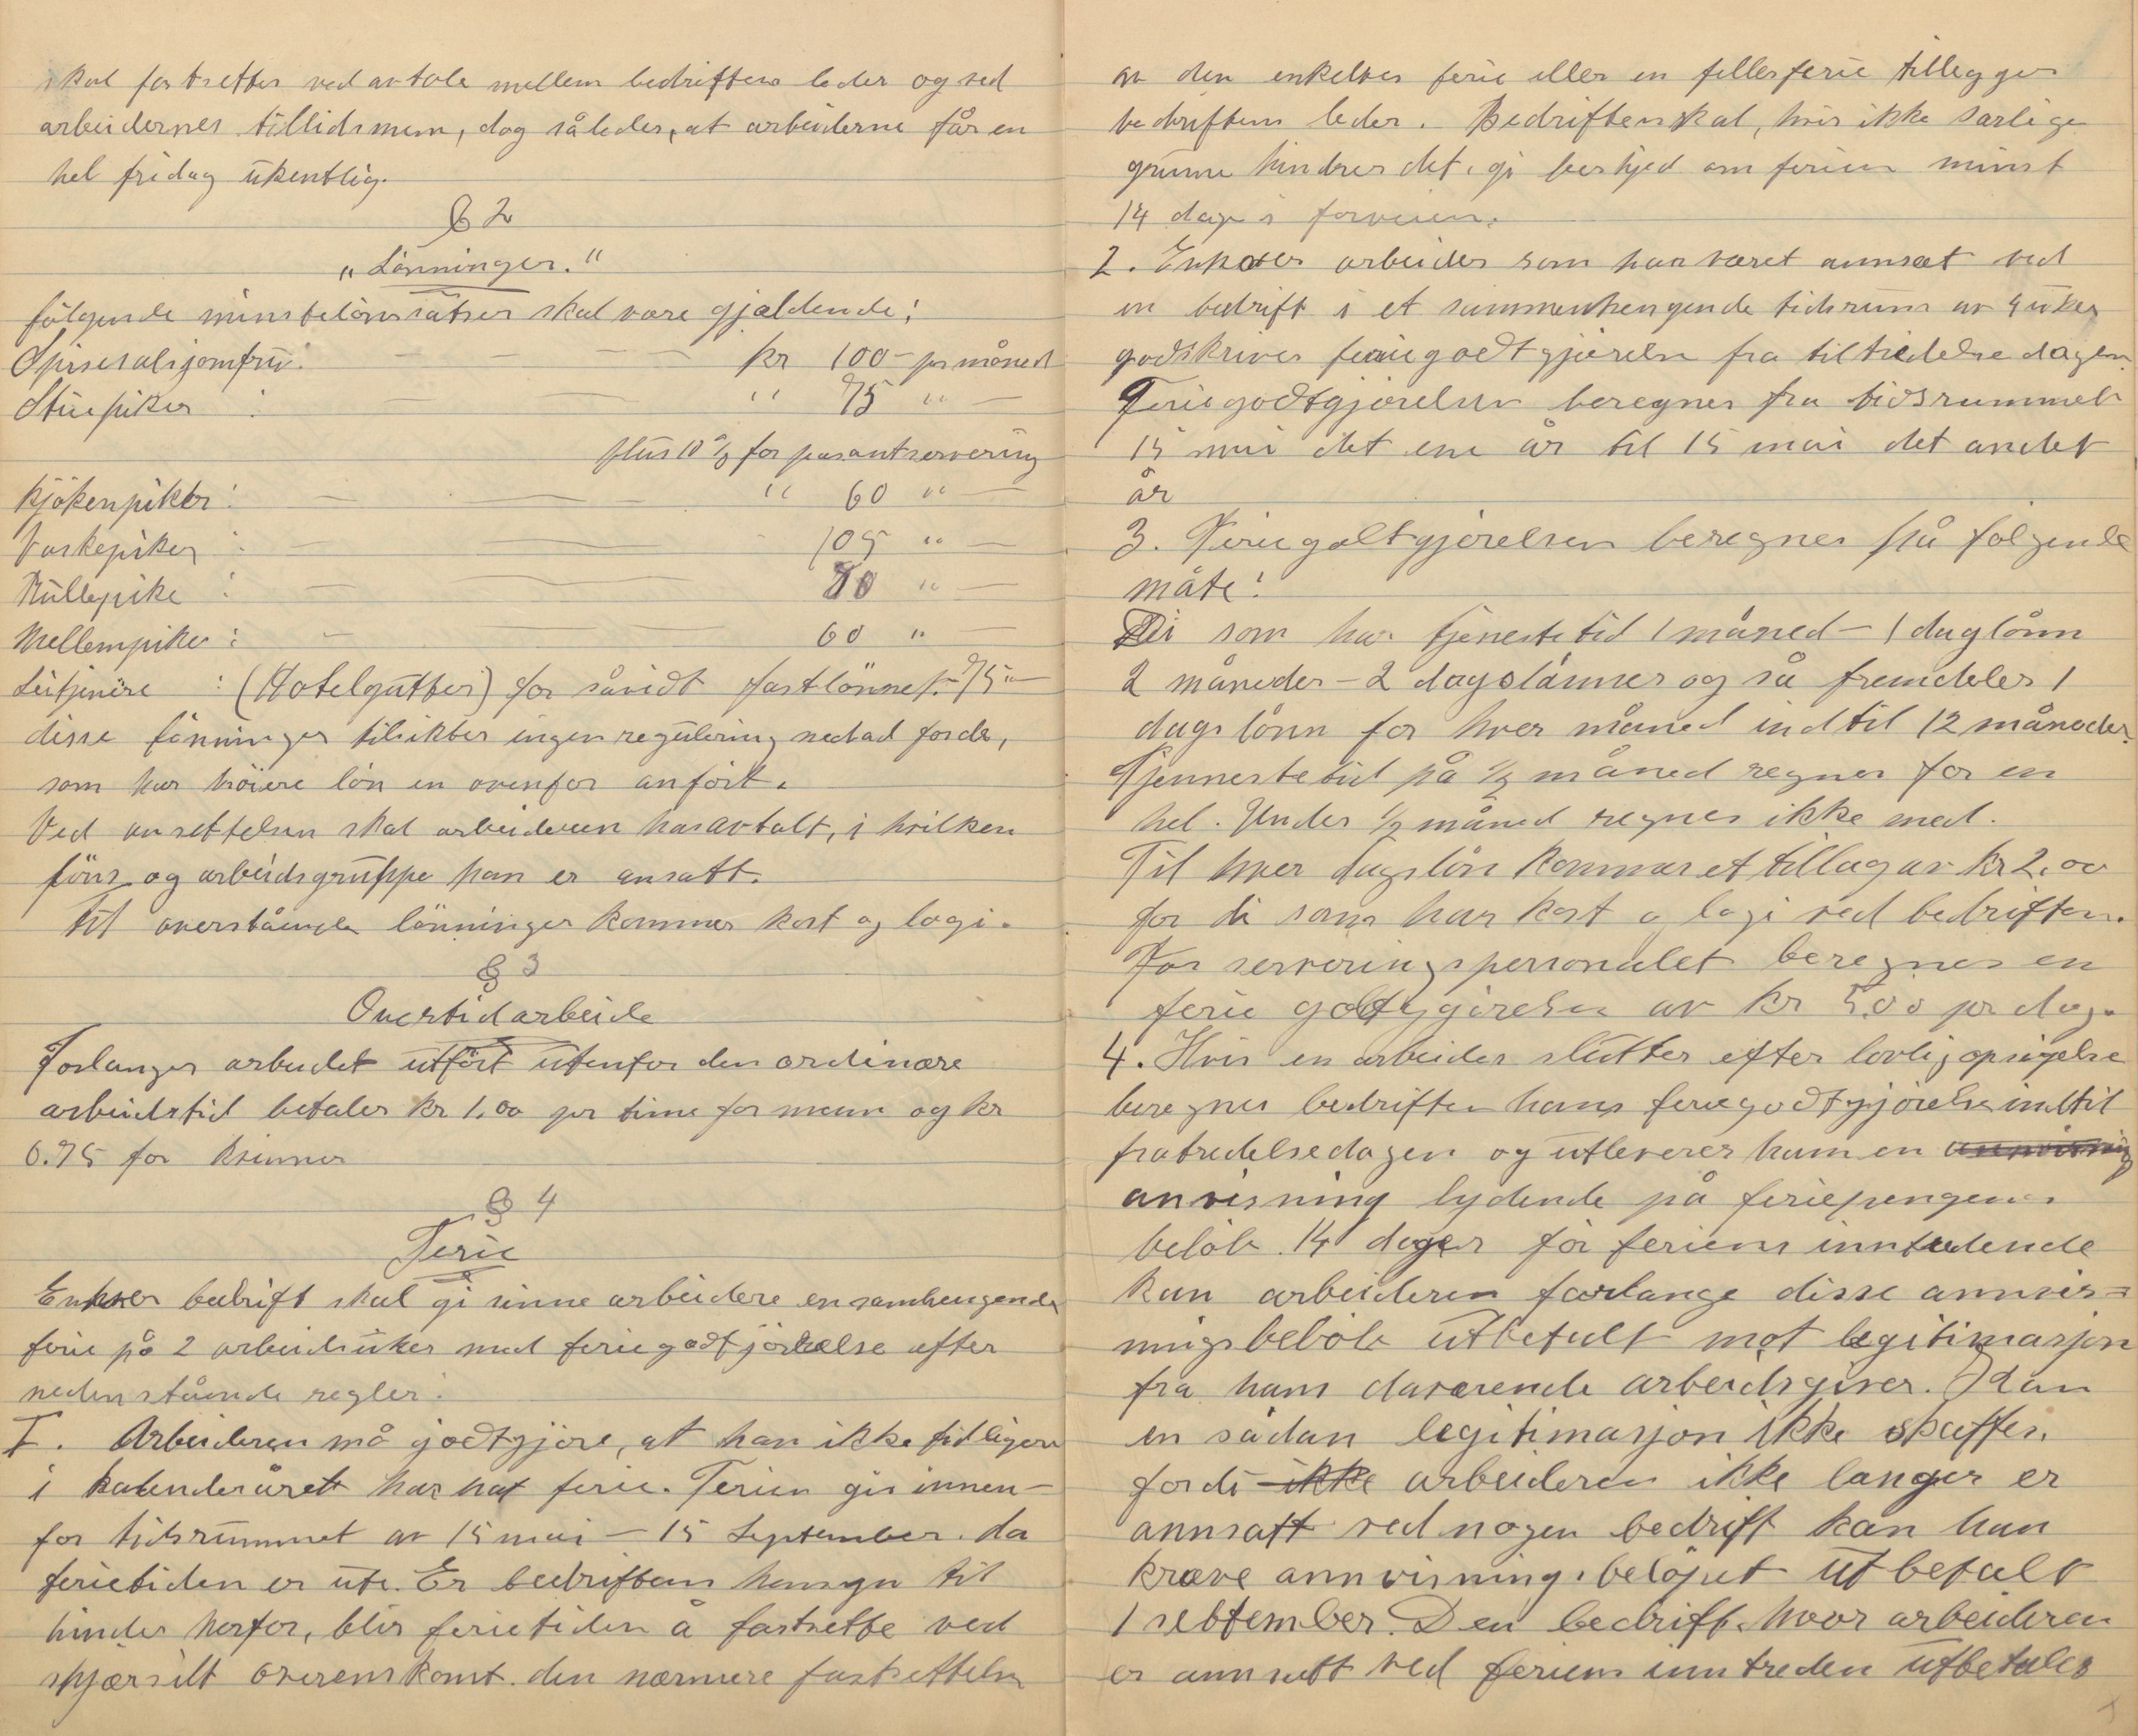 skal fastsettes ved avtale mellem bedriftens leder og ved
arbeidernes tillidsmenn, dog således, at arbeiderne får en
hel fridag ukentlig.
§ 2
"Lönninger."
fölgende minstelönssatser skal være gjældende:
Spisesalsjomfru: kr 100 - pr måned
Stuepiker : " 75 " —
plus 10 % for pasantservering
Kjökenpiker: " 60 " —
Vaskepiker : 105 " —
Rullepike : 80 " —
Mellempiker : 60 " —
: (Hotelgutter) for såvidt fastlönnet. - 75 " —
disse lönninger tilsikter ingen regulering nedad for de,
som har höiere lön en ovenfor anfört.
Ved ansettelsen skal arbeideren has avtalt, i hvilken
löns og arbeidsgruppe han er ansatt.
Til overstående lönninger kommer kost og logi.
§ 3
Overtidarbeide
Forlanges arbeidet utfört utenfor den ordinære
arbeidstid betales kr 1.00 pr time for menn og kr
0.75 for kvinner
§ 4
Ferie
Enhver bedrift skal gi sinne arbeidere en samhengende
ferie på 2 arbeidsuker med feriegodtjörelse efter
nedenstående regler:
I. Arbeideren må godtgjöre, at han ikke tidligere
i kalenderåret har hat ferie. Ferien gis innen-
for tidsrummet av 15 mai — 15 September. da
ferietiden er ute. Er bedriftens hensyn til
hinder herfor, blir ferietiden å fastsette ved
skjærsilt overenskomt. den nærmere fastsettelse
av den enkeltes ferie eller en fellesferie tillegges
bedriftens leder. Bedriften skal, hvis ikke særlige
grunne hindrer det, gi beskjed om ferien minst
14 dage i forveien.
2. Enhver arbeider som har været annsat ved
en bedrift i et sammenhengende tidsrum av 4 uker
godskrives feriegodtgjörelse fra tiltredelsedagen.
Feriegodtgjörelsen beregnes fra tidsrummet
15 mai det ene år til 15 mai det andet
år
3. Feriegodtgjörelsen beregnes på fölgende
måte:
Di som har tjenestetid 1 måned — 1 daglönn
2 måneder — 2 dagslönner og så fremdeles 1
dagslönn for hver måned indtil 12 måneder.
Tjennestetid på ½ måned regnes for en
hel. Under ½ måned regnes ikke med.
Til hver dagslön kommer et tillag av kr 2.00
for di som har kost o logi ved bedriften.
For serveringspersonalet beregnes en
ferie godtgjörelse av kr 5.00 pr dag.
4. Hvis en arbeider slutter efter lovlig opsigelse
beregner bedriften hans feriegodtgjörelse indtil
fratredelsedagen og utleverer ham en anvisning
anvisning lydende på feriepengenes
belöb. 14 dager för feriens inntredende
kan arbeideren forlange disse annvis=
nings belöb utbetalt mot legitimasjon
fra hans daværende arbeidsgiver. Kan
en sådan legitimasjon ikke skaffes.
fordi ikke arbeideren ikke langer er
annsatt ved nogen bedrift kan han
kræve annvisning. belöpet utbetalt
1 sebtember. Den bedrift. hvor arbeideren
er annsatt ved feriens inntreden utbetales